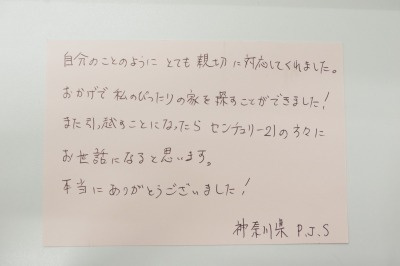 自分のことのように とても 親切 に対応してくれました。
おかげで 私のぴったりの家を探すことができました!
また引っ越すことになったら センチュリー21の方々に
お世話になると思います。
本当に ありがとうございました!
神奈川県 P.J.S